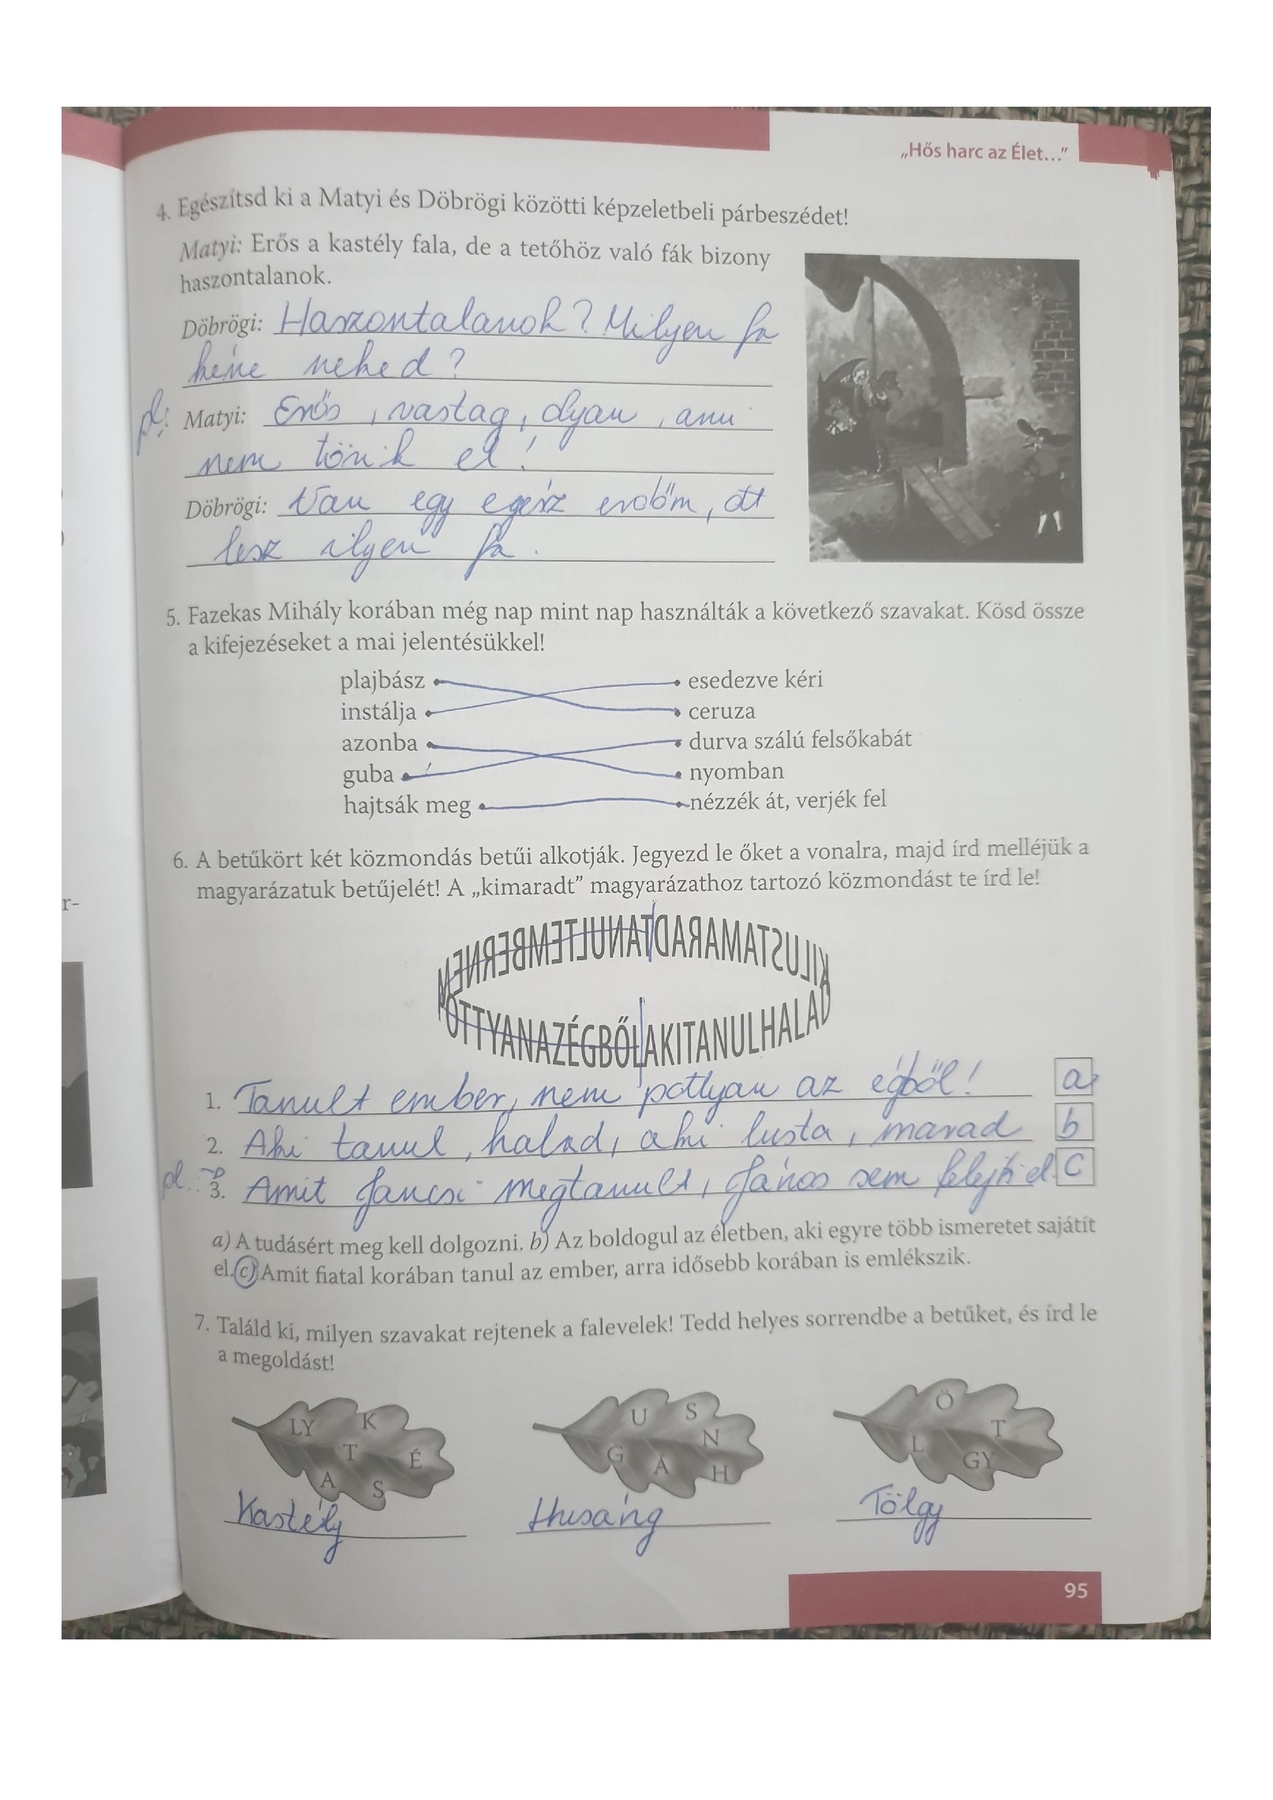 „Hős harc az Élet…”
4. Egészítsd ki a Matyi és Döbrögi közötti képzeletbeli párbeszédet!
Matyi: Erős a kastély fala, de a tetőhöz való fák bizony
haszontalanok.
Döbrögi: Haszontalanok? Milyen fa
kéne neked?
pl: Matyi: Erős, vastag, olyan, ami
nem törik el!
Döbrögi: Van egy egész erdőm, ott
lesz ilyen fa.
5. Fazekas Mihály korában még nap mint nap használták a következő szavakat. Kösd össze
a kifejezéseket a mai jelentésükkel!
plajbász esedezve kéri
instálja ceruza
azonba durva szálú felsőkabát
guba nyomban
hajtsák meg nézzék át, verjék fel
6. A betűkört két közmondás betűi alkotják. Jegyezd le őket a vonalra, majd írd melléjük a
magyarázatuk betűjelét! A „kimaradt” magyarázathoz tartozó közmondást te írd le!
r-
KILUSTAMARADTANULTEMBERNEM
POTTYANAZÉGBŐLAKITANULHALAD
1. Tanult ember, nem pottyan az égből! a
2. Aki tanul, halad, aki lusta, marad b
pl. 3. Amit Jancsi megtanult, János sem felejti el. c
a) A tudásért meg kell dolgozni. b) Az boldogul az életben, aki egyre több ismeretet sajátít
el. c) Amit fiatal korában tanul az ember, arra idősebb korában is emlékszik.
7. Találd ki, milyen szavakat rejtenek a falevelek! Tedd helyes sorrendbe a betűket, és írd le
a megoldást!
LY K T É A S
U S N G Á H
Ö T L GY
Kastély Husáng Tölgy
95